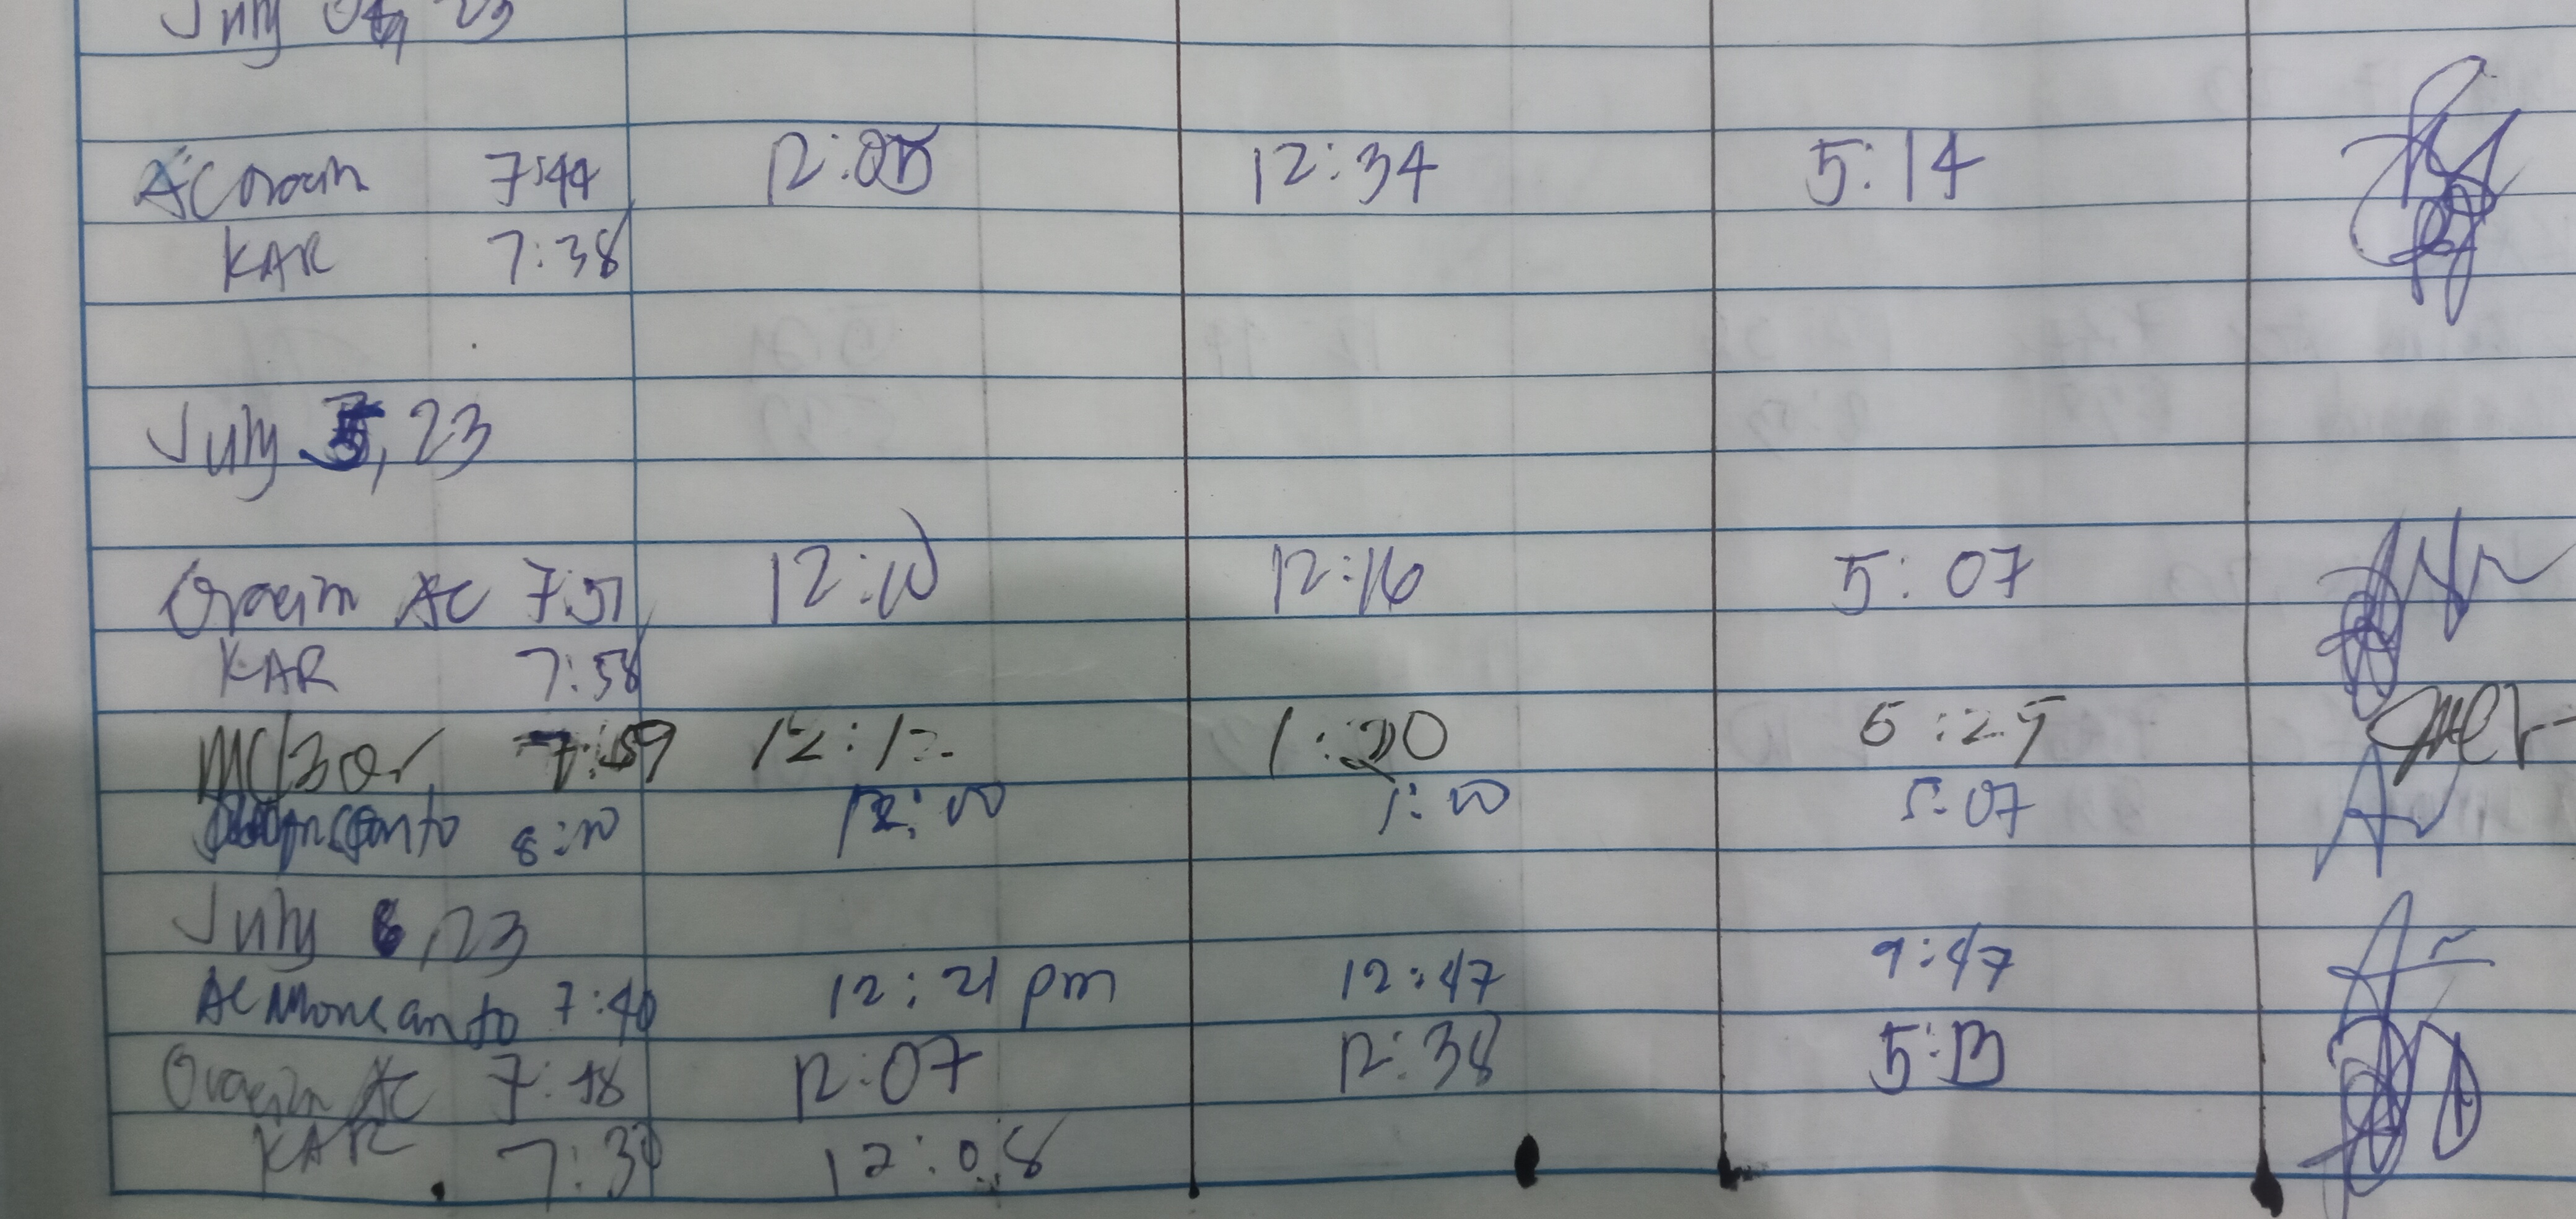 July 04, 23
AC Oracin 7:44 12:05 12:34 5:14
KAR 7:38
July 5, 23
Oracin AC 7:51 12:10 12:16 5:07
KAR 7:58
7:59 12:12 1:20 5:25
8:10 12:00 1:00 5:07
July 6, 23
AC Moncanto 7:40 12:21 pm 12:47 9:47
Oracin AC 7:48 12:07 12:38 5:13
KAR 7:30 12:08